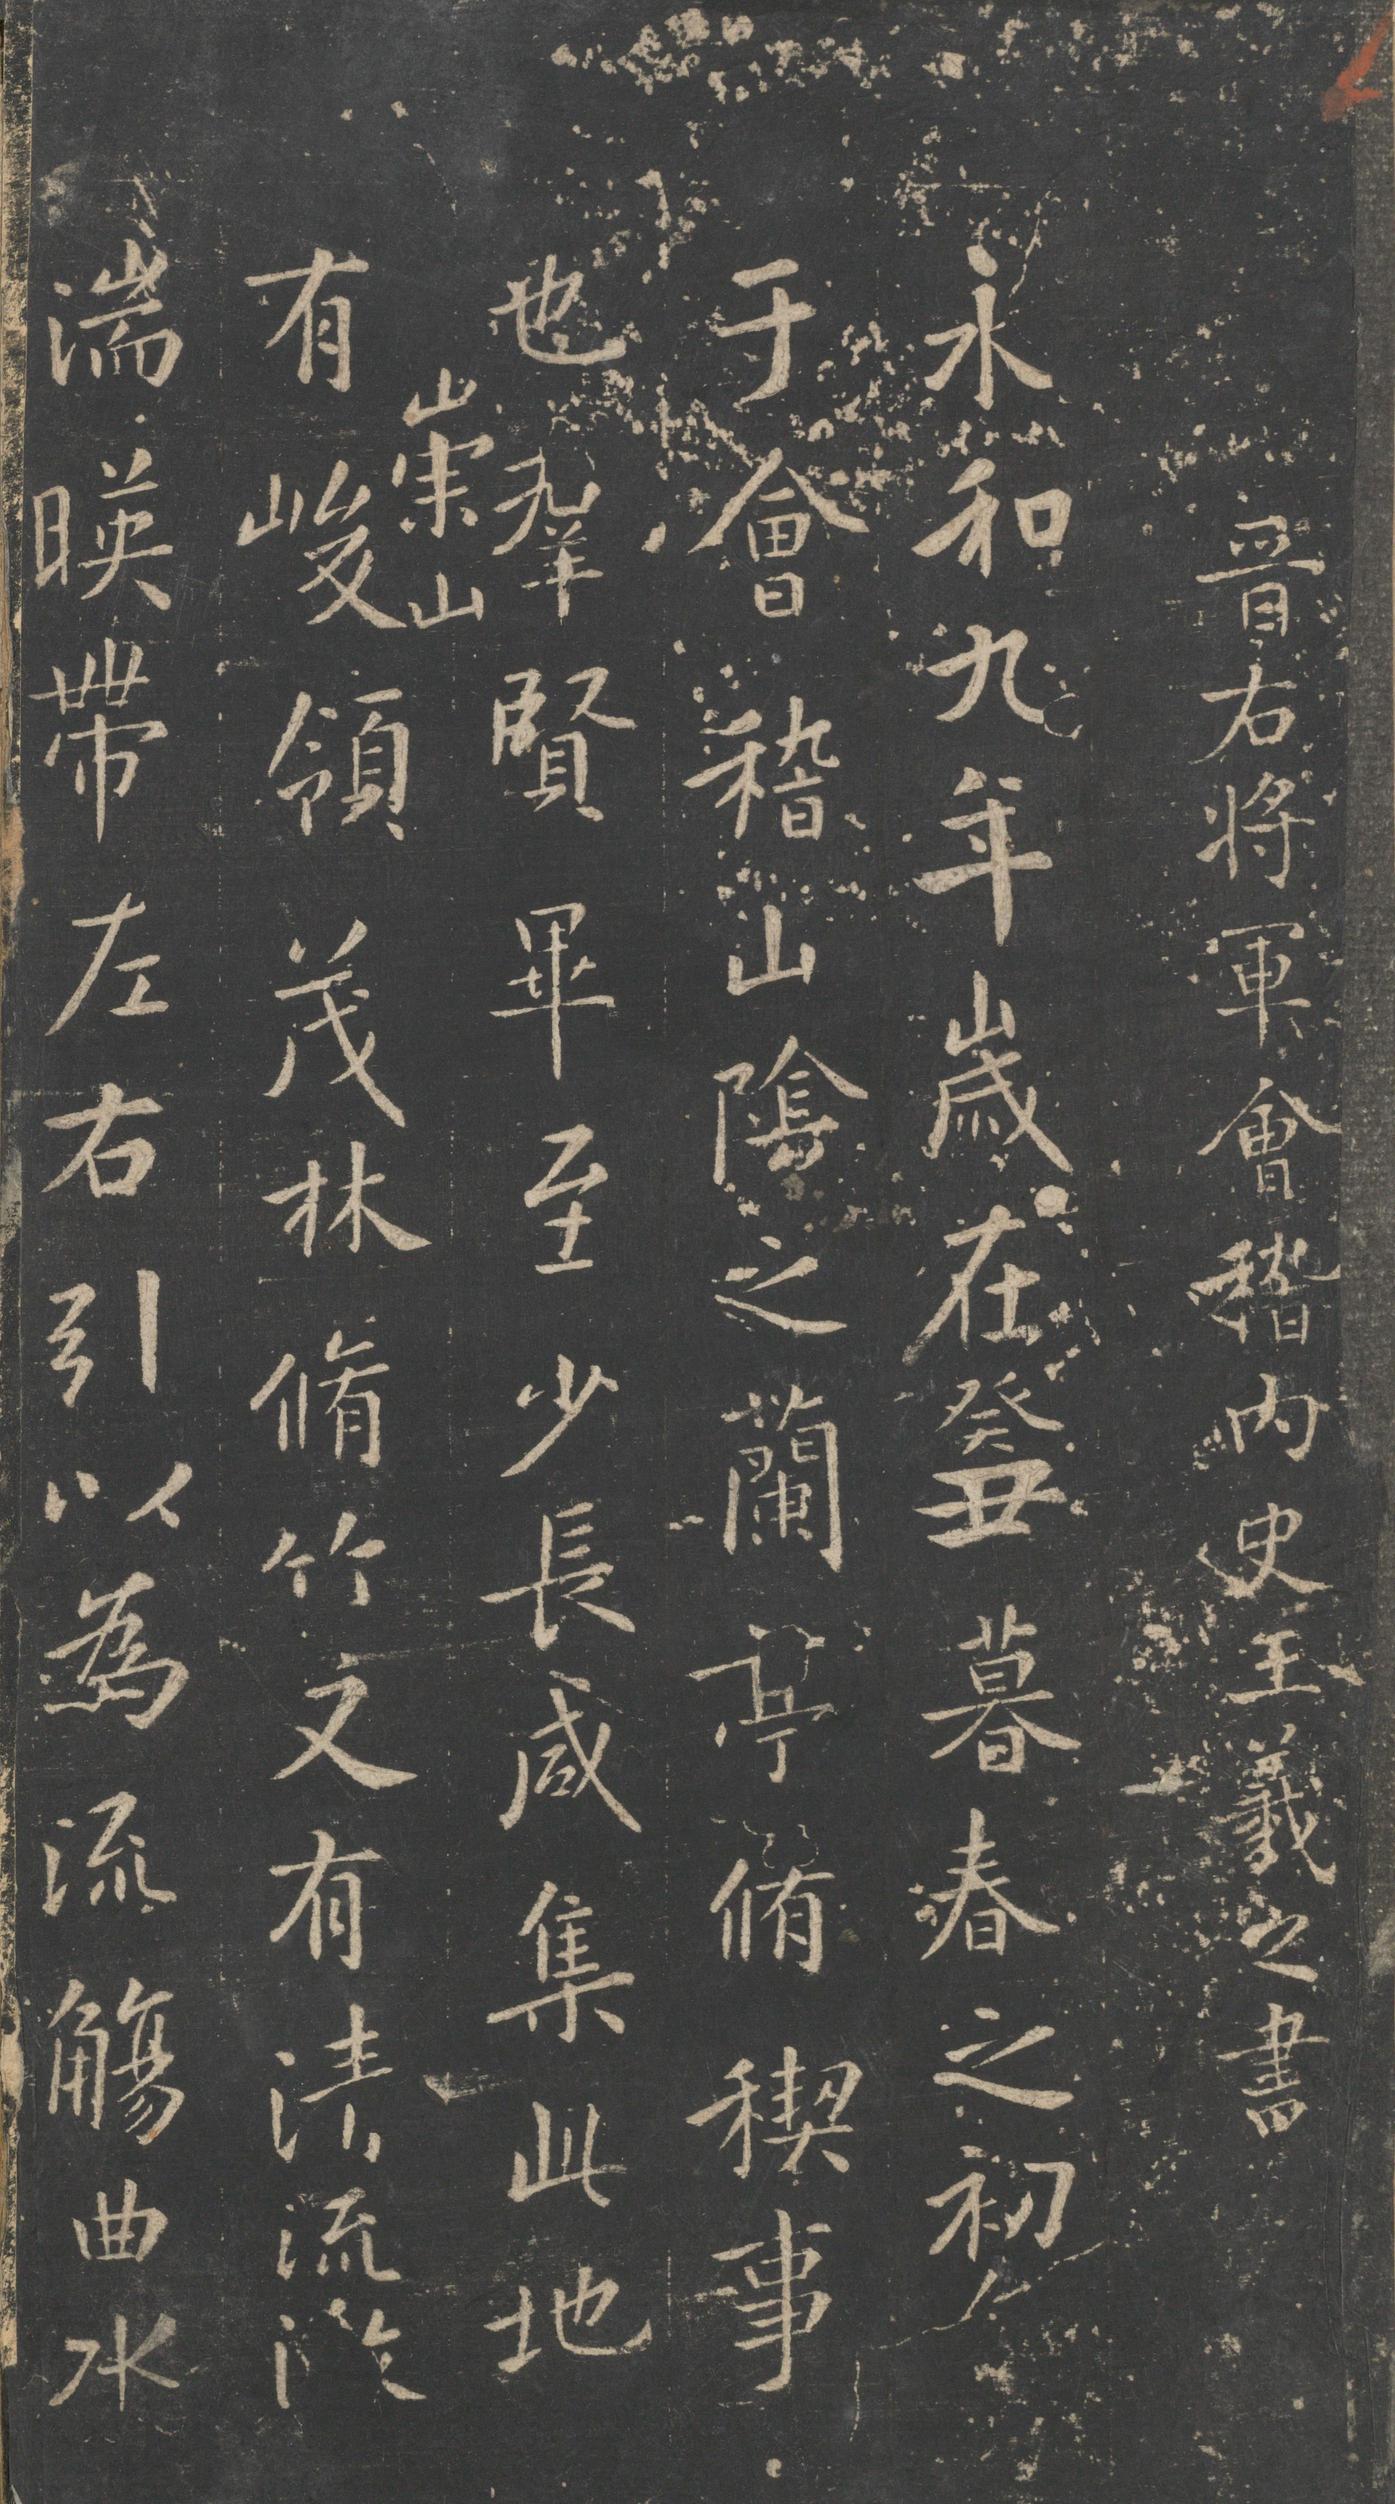 晉右將軍會稽內史王羲之書
永和九年歲在癸丑暮春之初
于會稽山陰之蘭亭脩稧事
也羣賢畢至少長咸集此地
崇山
有峻領茂林脩竹又有清流激
湍暎帶左右引以為流觴曲水